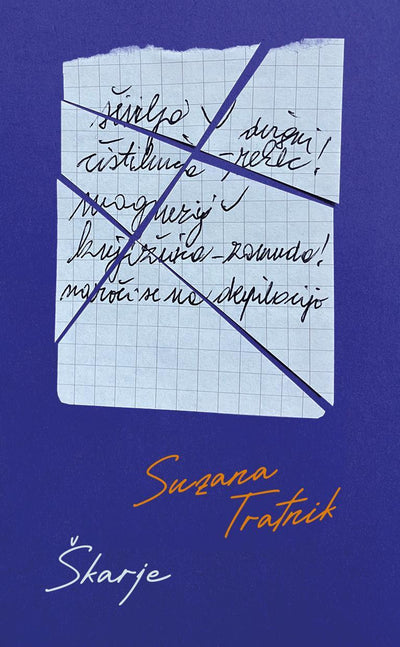 šivilja ✓
dvigni
čistilnica –
magnezij ✓
knjižnica – zamuda!
naroči se na depilacijo
Suzana
Tratnik
Škarje